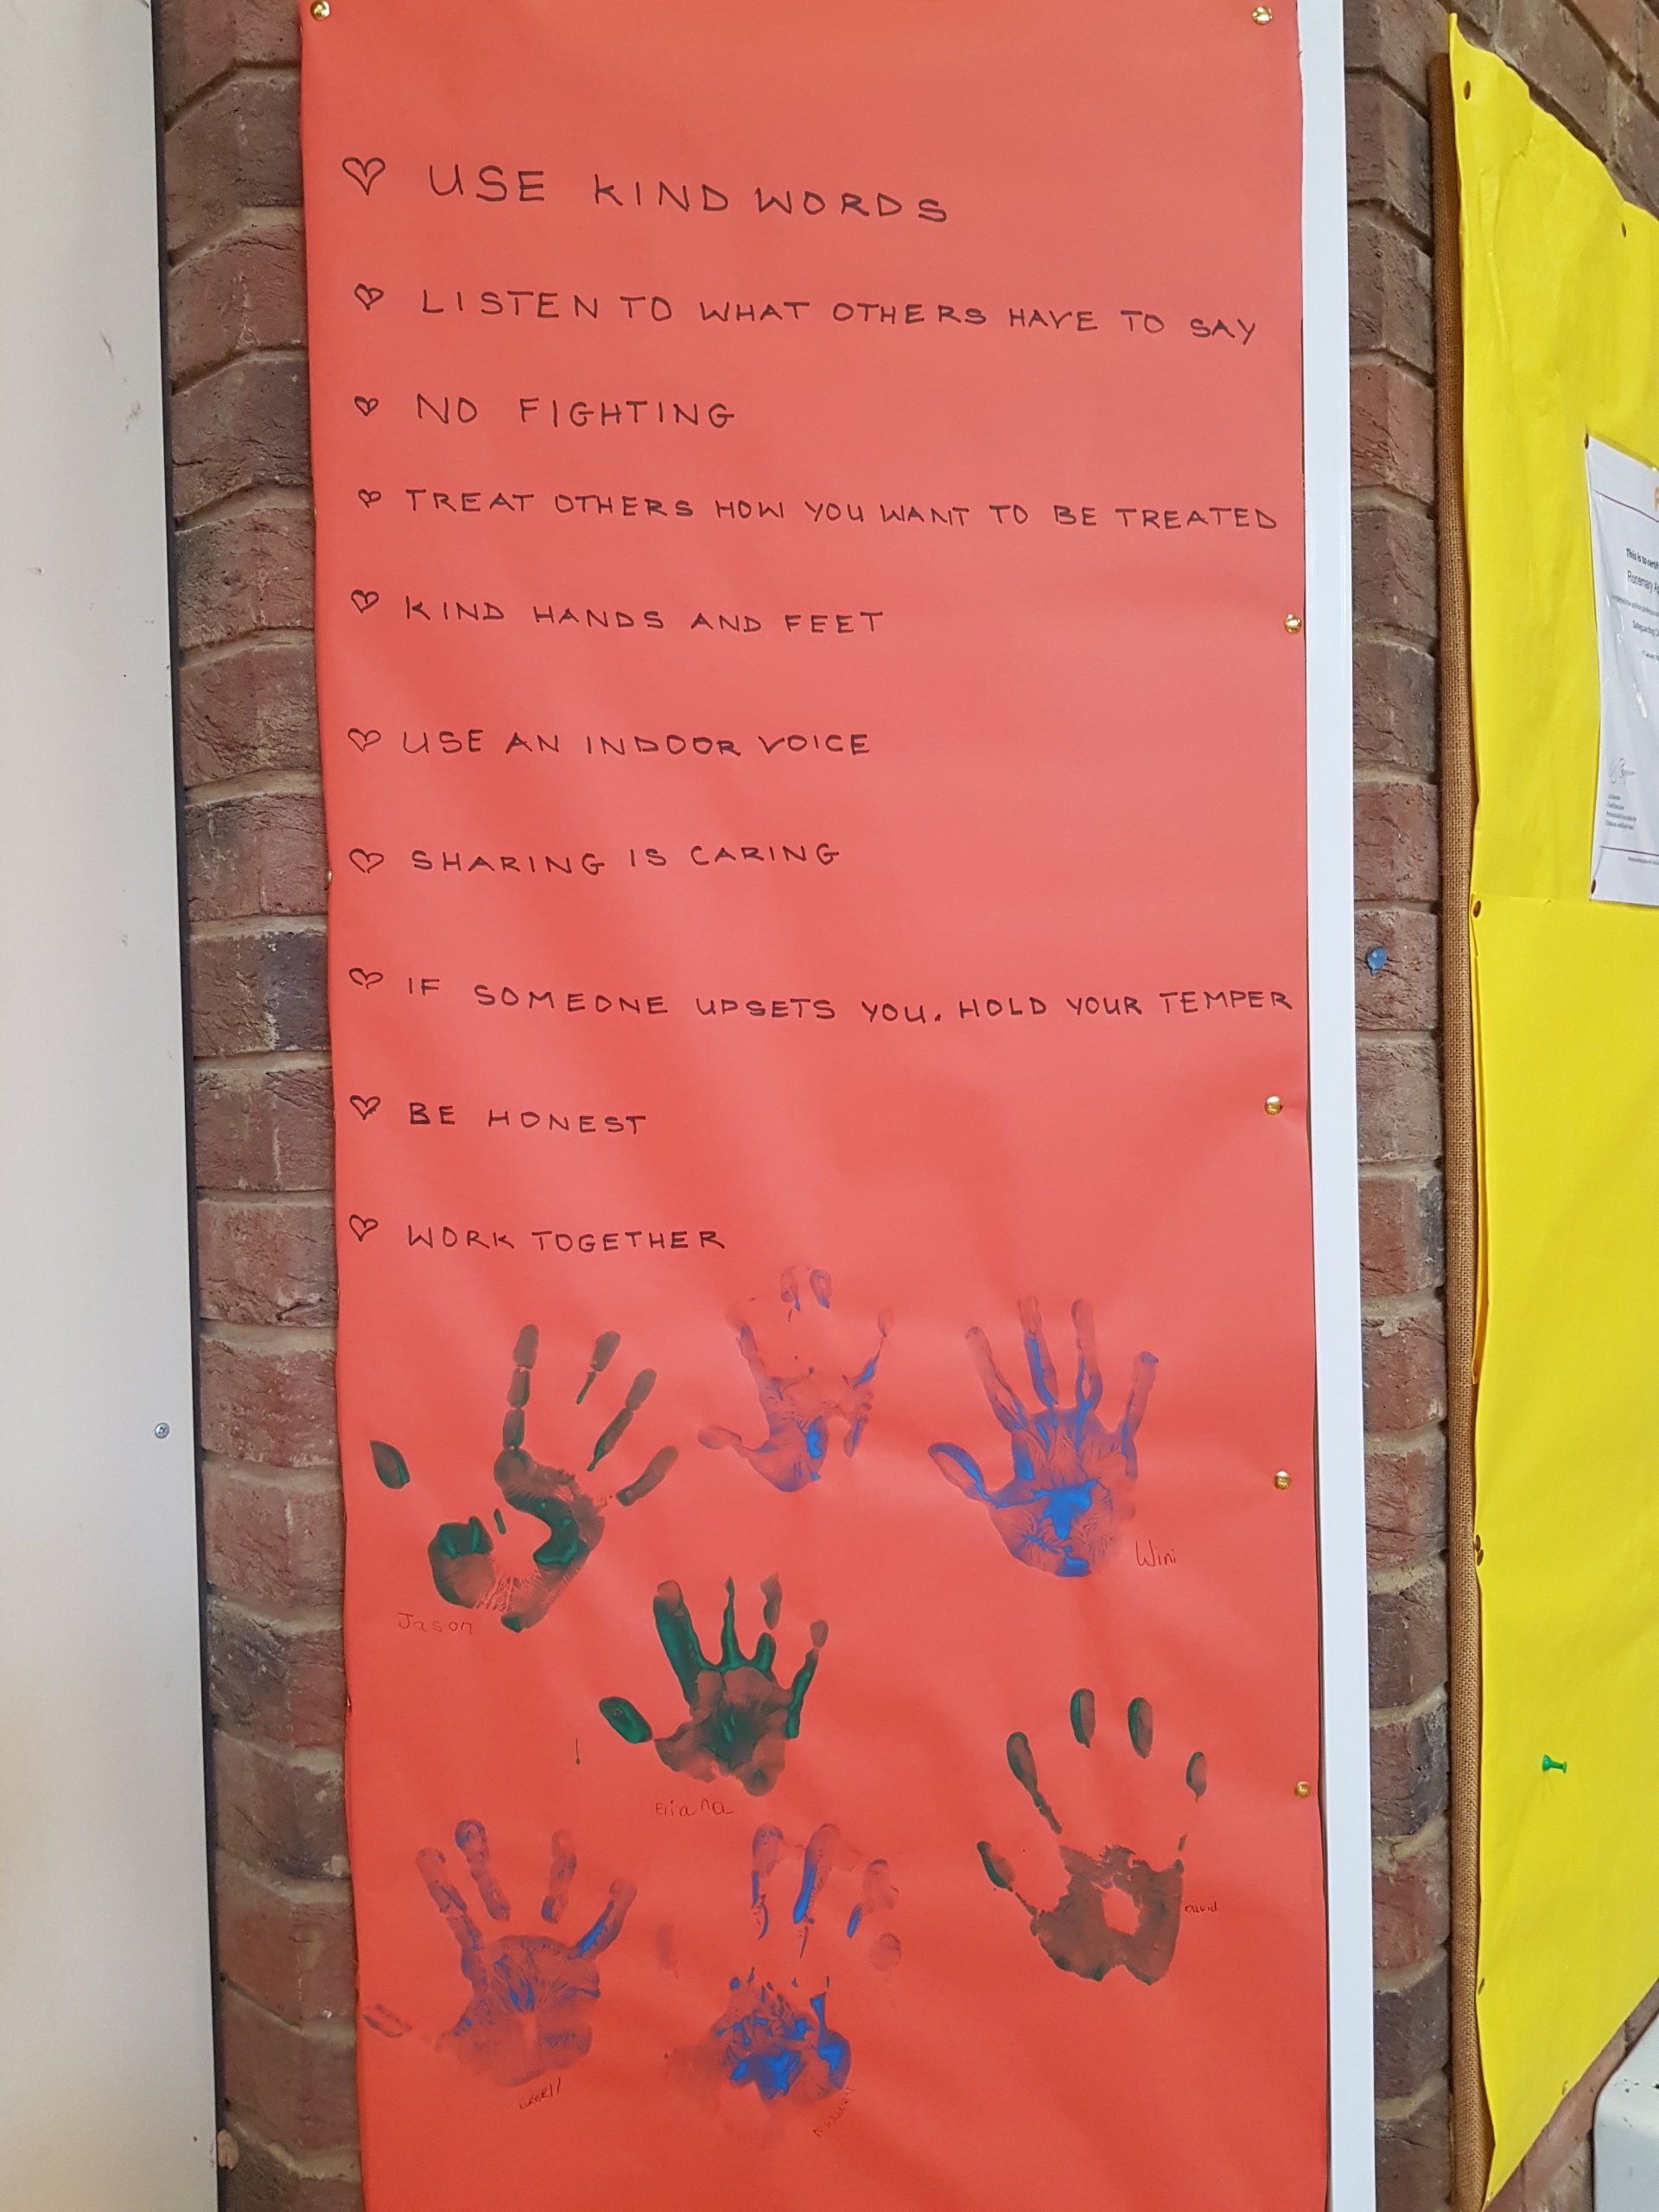 USE KIND WORDS
LISTEN TO WHAT OTHERS HAVE TO SAY
NO FIGHTING
TREAT OTHERS HOW YOU WANT TO BE TREATED
KIND HANDS AND FEET
USE AN INDOOR VOICE
SHARING IS CARING
IF SOMEONE UPSETS YOU. HOLD YOUR TEMPER
BE HONEST
WORK TOGETHER
Wini
Jason
Eliana
David
This is to certif
Rosemary